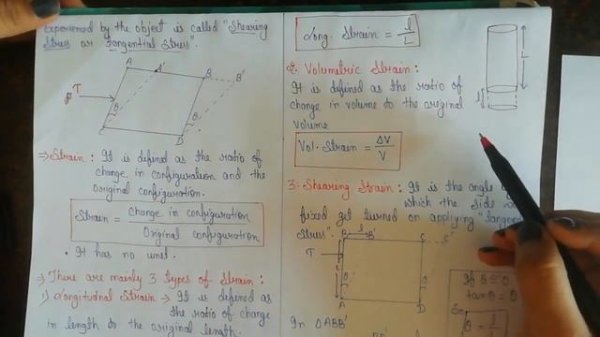 experienced by the object is called "Shearing
Stress or Tangential Stress".
A
A'
B
B'
T
θ
θ
D
⇒ Strain : It is defined as the ratio of
change in configuration and the
original configuration.
Strain = Change in configuration
Original configuration
• It has no unit.
⇒ There are mainly 3 types of Strain:
1) Longitudinal Strain → It is defined as
the ratio of change
in length to the original length.
Long. Strain = l
L
L
l
2. Volumetric Strain:
It is defined as the ratio of
change in volume to the original
volume
Vol. Strain = ΔV
V
3. Shearing Strain: It is the angle
which the side
fixed get turned on applying "tangen
Stress".
B
B'
C
T
θ
A
D
If θ
tanθ = θ
So,
θ = l
In ΔABB'